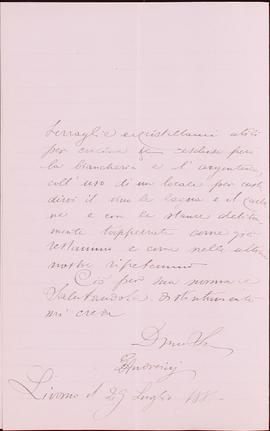 terraglie e cristallami utili
per cucina esclusa però
la biancheria e l'argenteria
coll'uso di un locale per custo
dirvi il vino la legna e il carbo
ne e con le stanze debita
mente tapperate come già
restammo e come nella ultima
nostra ripetemmo
Ciò per sua norma e
Salutandola distintamente
mi creda
Livorno il 29 Luglio 188